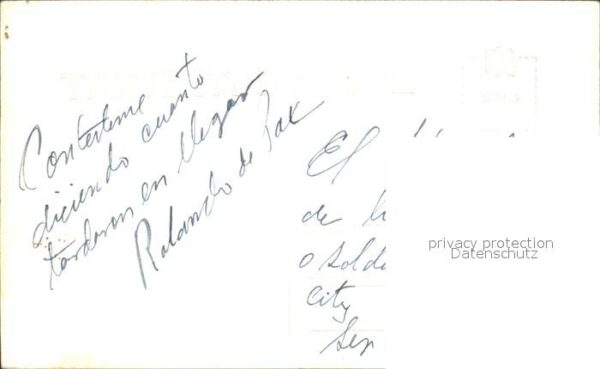 Contesteme
diciendo cuanto
tardaron en llegar
Rolando de Pax
El
de l
o solda
City
Sep
privacy protection
Datenschutz